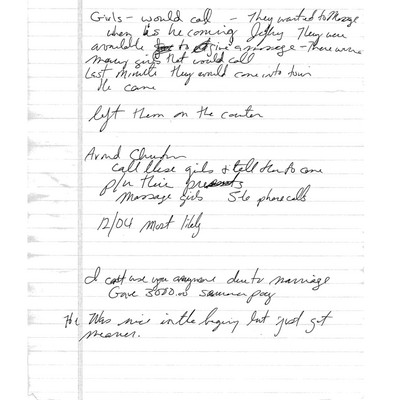 Girls - would call - They wanted to Massage
when is he coming Jeffry They were
available to give a massage - There were
many girls that would call
Last minute They would come into town
He came
left them on the counter
Around
call these girls & tell them to come
p/u their
Massage girls 5-6 phone calls
12/04 most likely
I can't use you anymore due to marriage
Gave 3000.00 summer pay
He Was nice in the beging but just got
meaner.